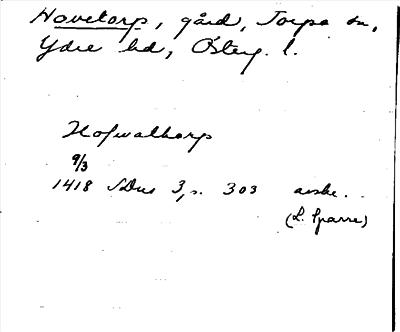 Hovetorp, gård, Torpa sn,
Ydre hd, Österg. l.
Hofwathorp
9/3
1418 SDns 3, s. 303 avskr.
(L. Sparre)